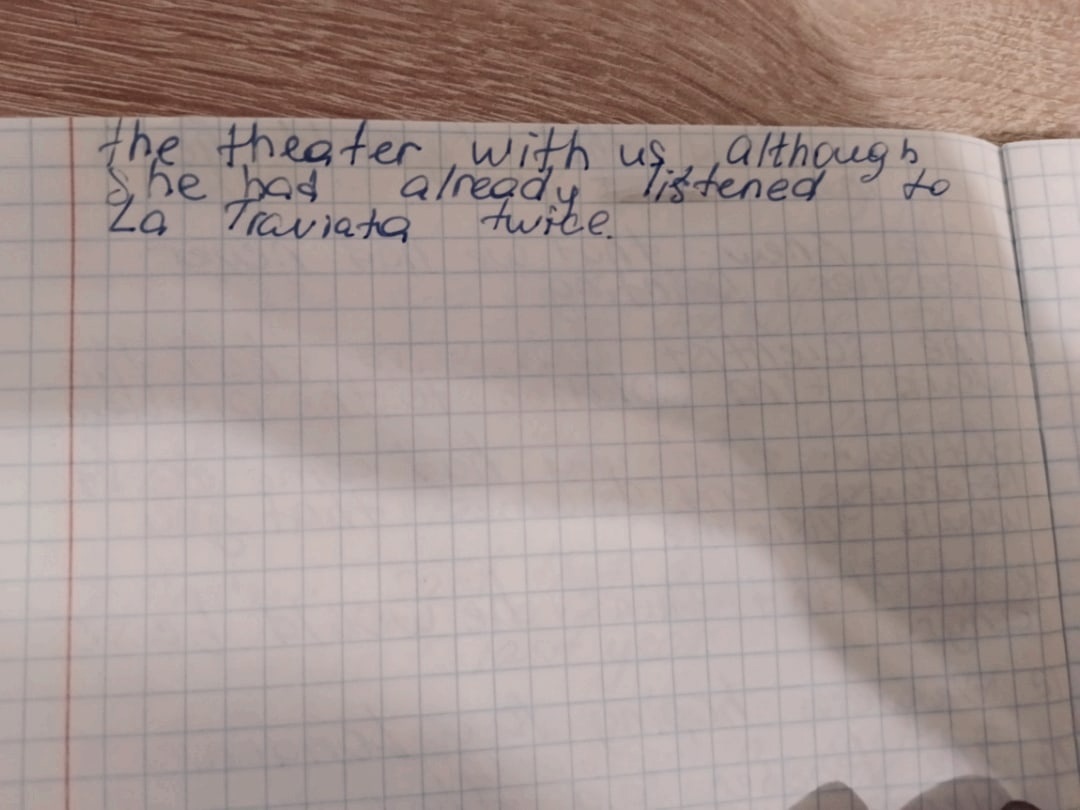 the theater with us, although
she had already listened to
La Traviata twice.